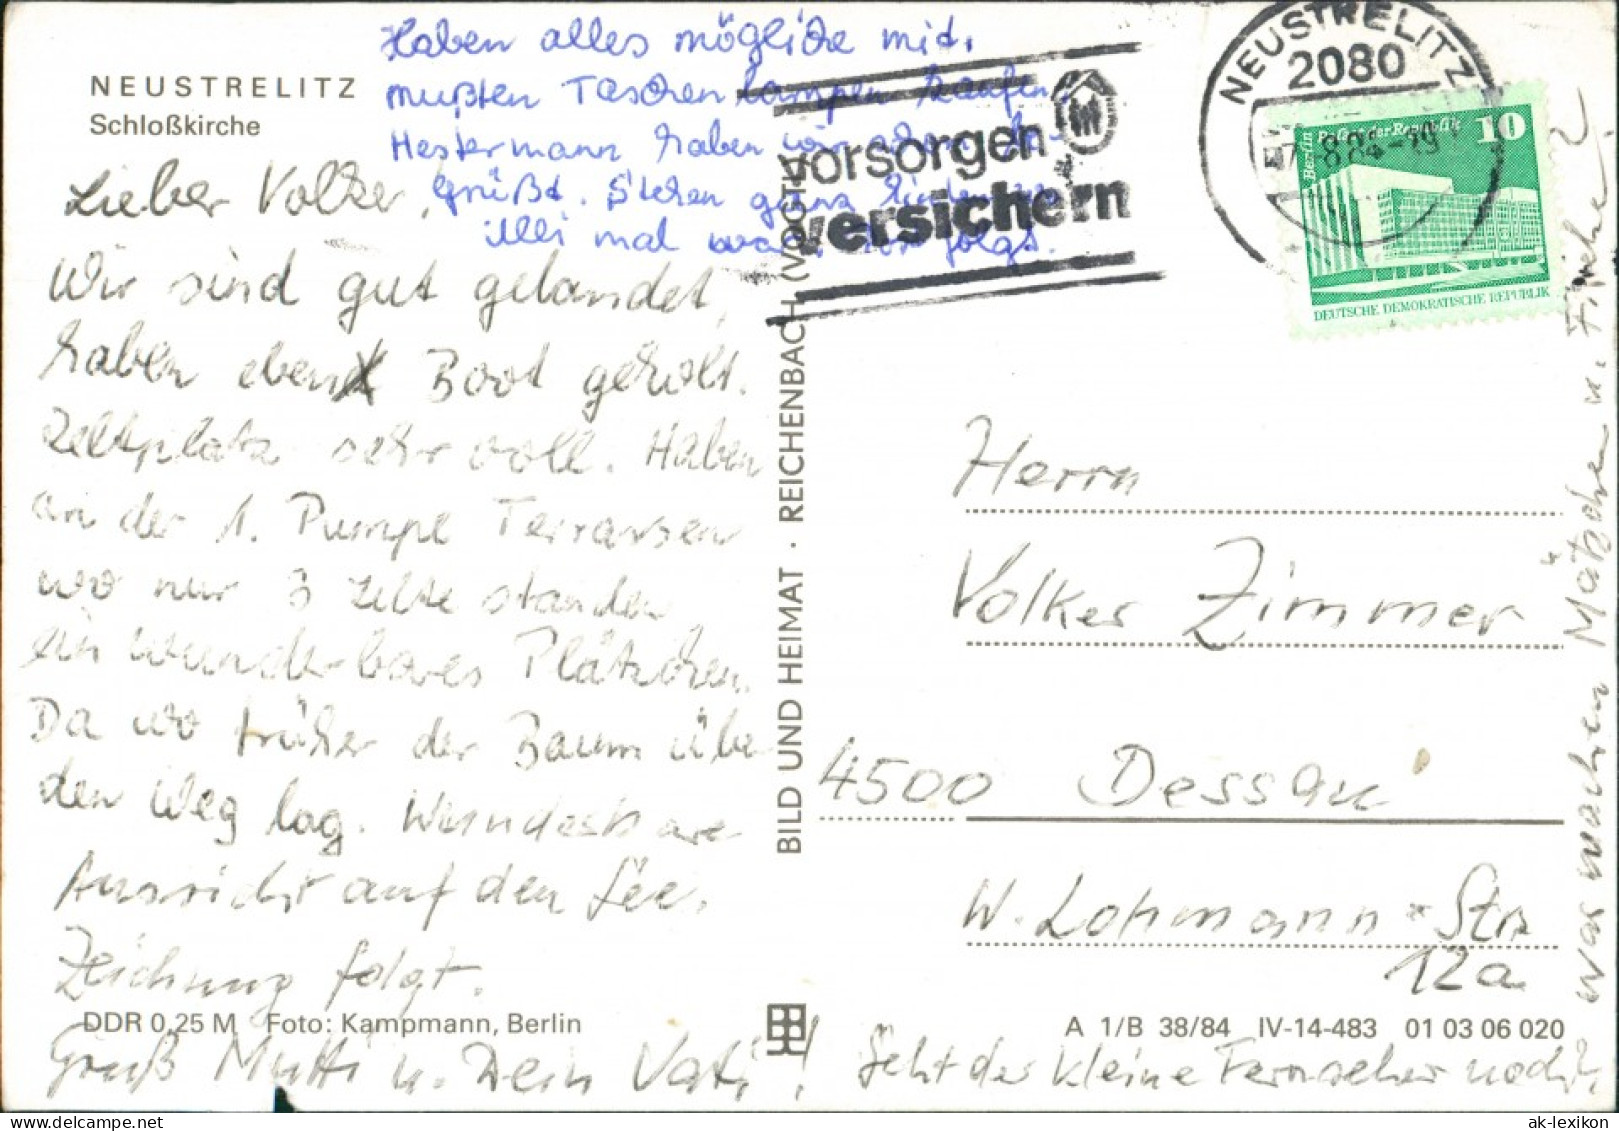 NEUSTRELITZ
Schloßkirche
Haben alles mögliche mit,
mußten Taschenlampen kaufen
Hestermann haben wir schon
grüßt. Stehen ganz
mal folgt.
Lieber Volker,
Wir sind gut gelandet,
haben eben Boot geholt.
Zeltplatz sehr voll. Haben
an der 1. Pumpe Terrassen
wo nur 3 Zelte standen
ein wunderbares Plätzchen.
Da wo früher der Baum über
den Weg lag. Wunderbare
Aussicht auf den See.
Zeichnung folgt.
Gruß Mutti u. Dein Vati!
DDR 0,25 M Foto: Kampmann, Berlin
BILD UND HEIMAT · REICHENBACH (VOGTL)
vorsorgen
versichern
NEUSTRELITZ
2080
Berlin Palast der Republik 10
DEUTSCHE DEMOKRATISCHE REPUBLIK
Herrn
Volker Zimmer
4500 Dessau
W. Lohmann-Str
12a
A 1/B 38/84 IV-14-483 01 03 06 020
Geht der kleine Fernseher noch?
Was machen Mätzchen u. Fische?
ak-lexikon